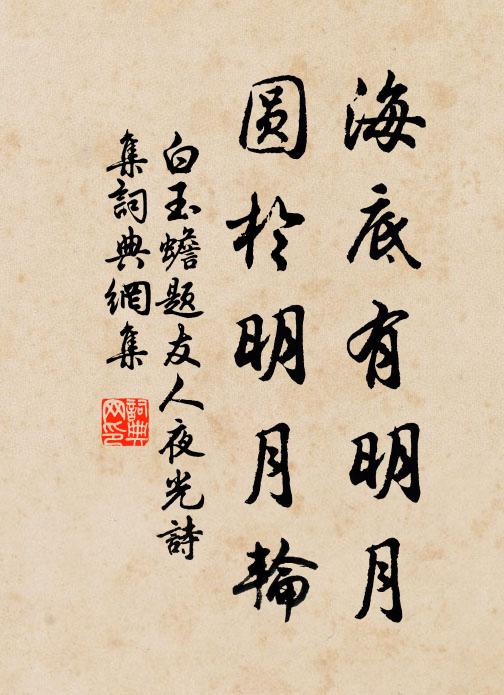 海底有明月
圓於明月輪
白玉蟾題友人夜光詩
集詞典網集
詞典网印